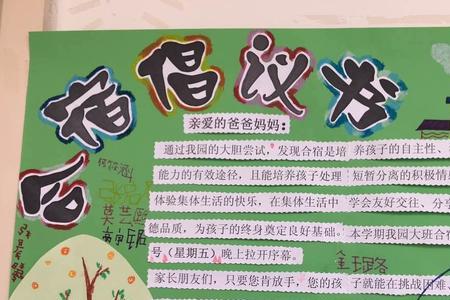 合宿倡议书
亲爱的爸爸妈妈：
通过我园的大胆尝试，发现合宿是培养孩子的自主性、
能力的有效途径，且能培养孩子处理短暂分离的积极情
体验集体生活的快乐，在集体生活中学会友好交往、分
德品质，为孩子的终身奠定良好基础。本学期我园大班合
号（星期五）晚上拉开序幕。
家长朋友们，只要您肯放手，您的孩子就能在挑战困难、